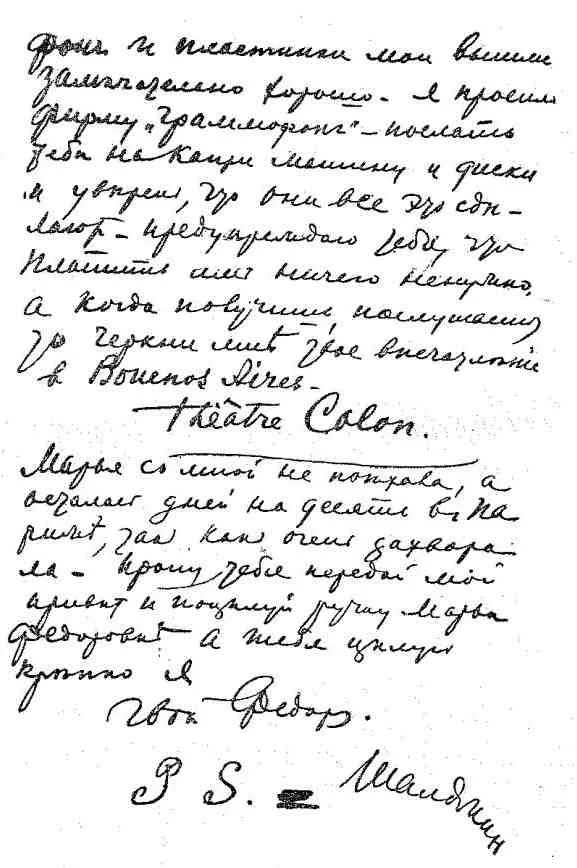 фонъ и пластинки мои вышли
замѣчательно хорошо - Я просилъ
фирму „Граммофонъ" - послать
тебѣ на Капри машину и диски
и увѣренъ, что они все это сдѣ-
лаютъ - предупреждаю тебя, что
платить имъ ничего ненужно,
а когда получишь, послушаешь
то черкни мнѣ твое впечатлѣніе
в Bouenos Aires -
Théâtre Colon.
Марья со мной не поѣхала, а
осталась дней на десять въ Па
рижѣ, так как очень захвора-
ла - прошу тебя передай мой
привѣт и поцѣлуй ручку Марьи
Федоровнѣ а тебя цѣлую
крѣпко я
Твой Федоръ.
P S. = Шаляпин